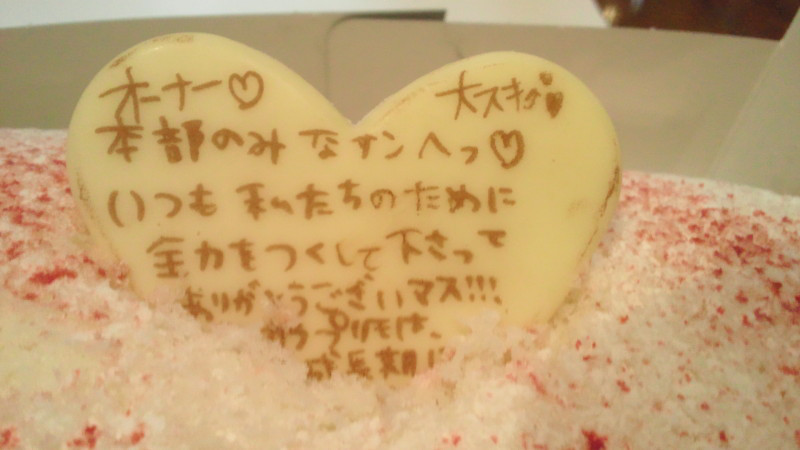 オーナー♡
大スキ
本部のみなサンへっ♡
いつも私たちのために
全力をつくして下さって
ありがとうございマス!!!
は、
成長期